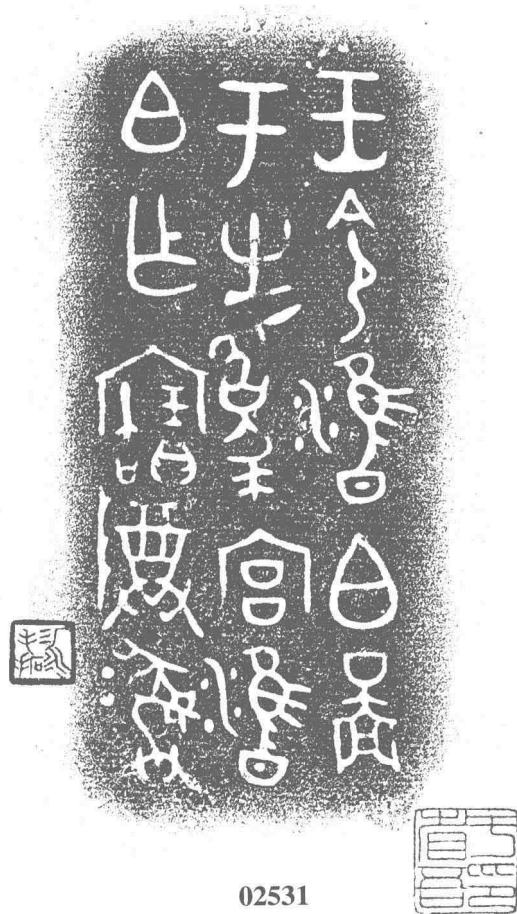 王令雝白啚
于㞢爲宮雝
白乍寶𬯚彝
02531